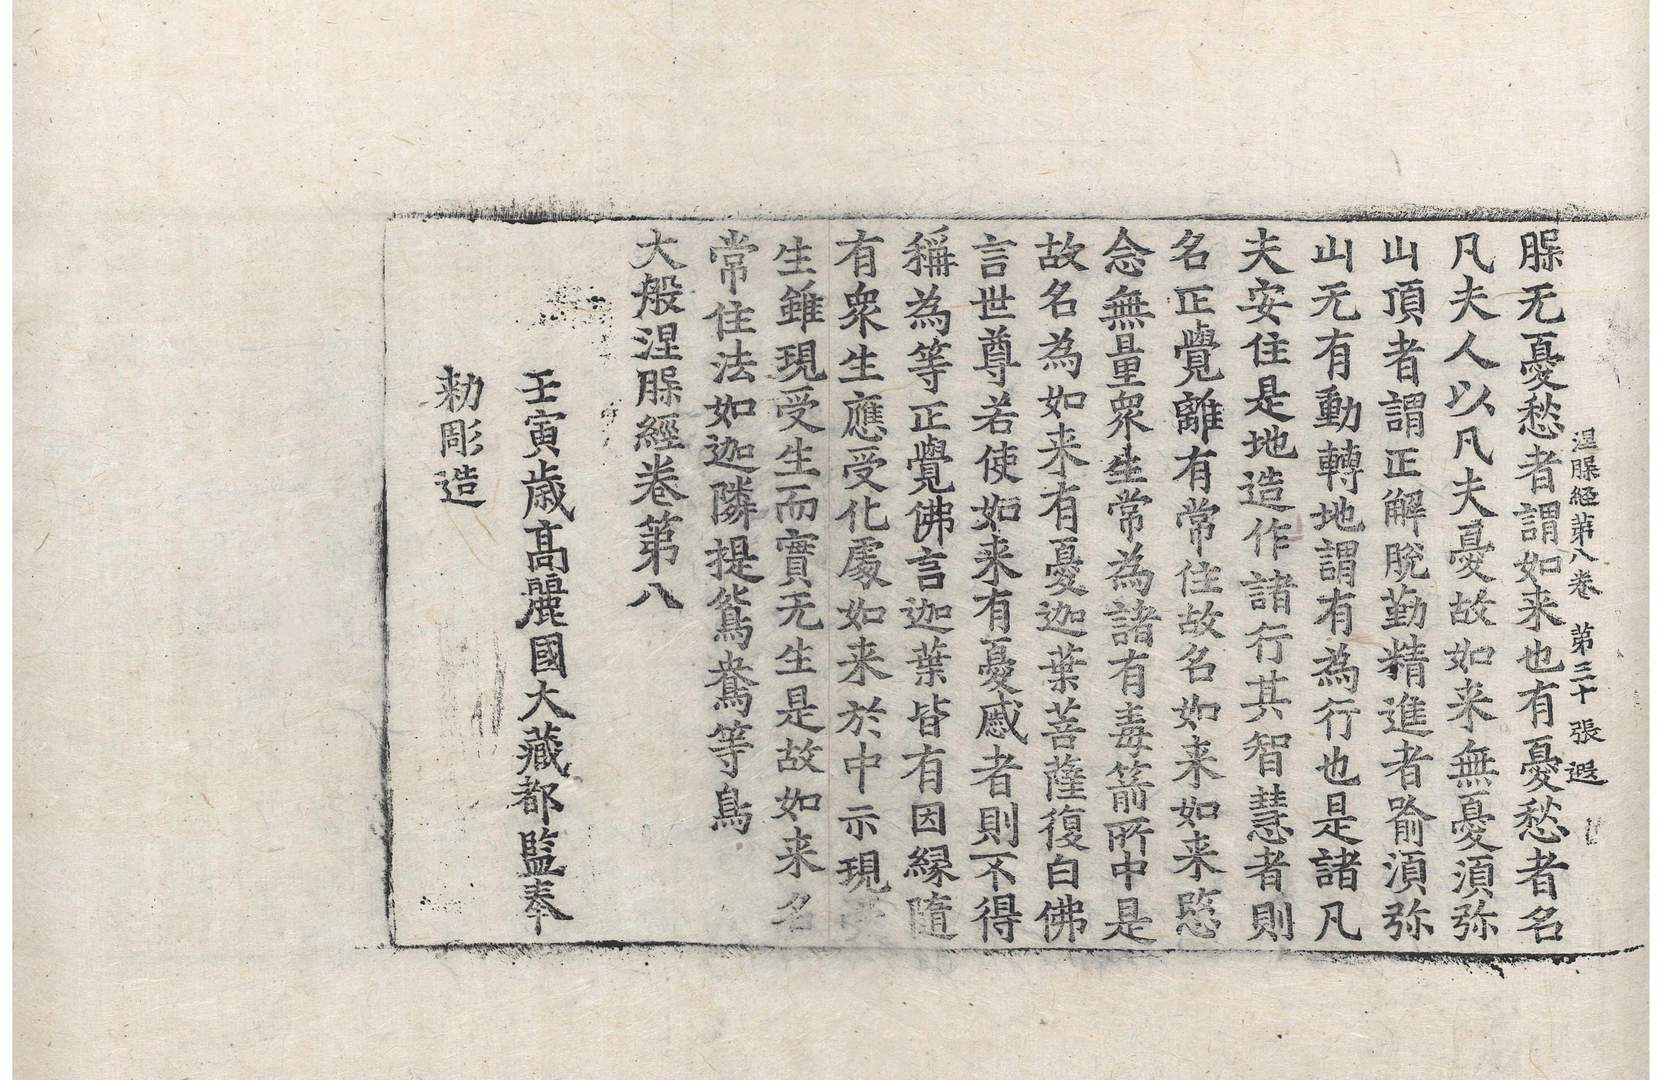 涅槃経第八卷　第三十張　遐
槃无憂愁者謂如来也有憂愁者名
凡夫人以凡夫憂故如来無憂湏弥
山頂者謂正解脫勤精進者喻湏弥
山无有動轉地謂有為行也是諸凡
夫安住是地造作諸行其智慧者則
名正覺離有常住故名如来如来愍
念無量衆生常為諸有毒箭所中是
故名為如来有憂迦葉菩薩復白佛
言世尊若使如来有憂慼者則不得
稱為等正覺佛言迦葉皆有因縁隨
有衆生應受化處如来於中示現受
生雖現受生而實无生是故如来名
常住法如迦隣提鴛鴦等鳥
大般涅槃經卷第八
壬寅歲高麗國大藏都監奉
勑彫造